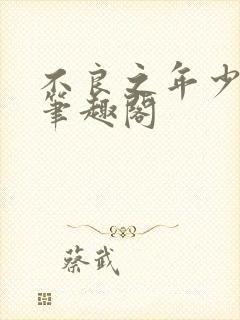 不良之年少
筆趣閣
蔡武